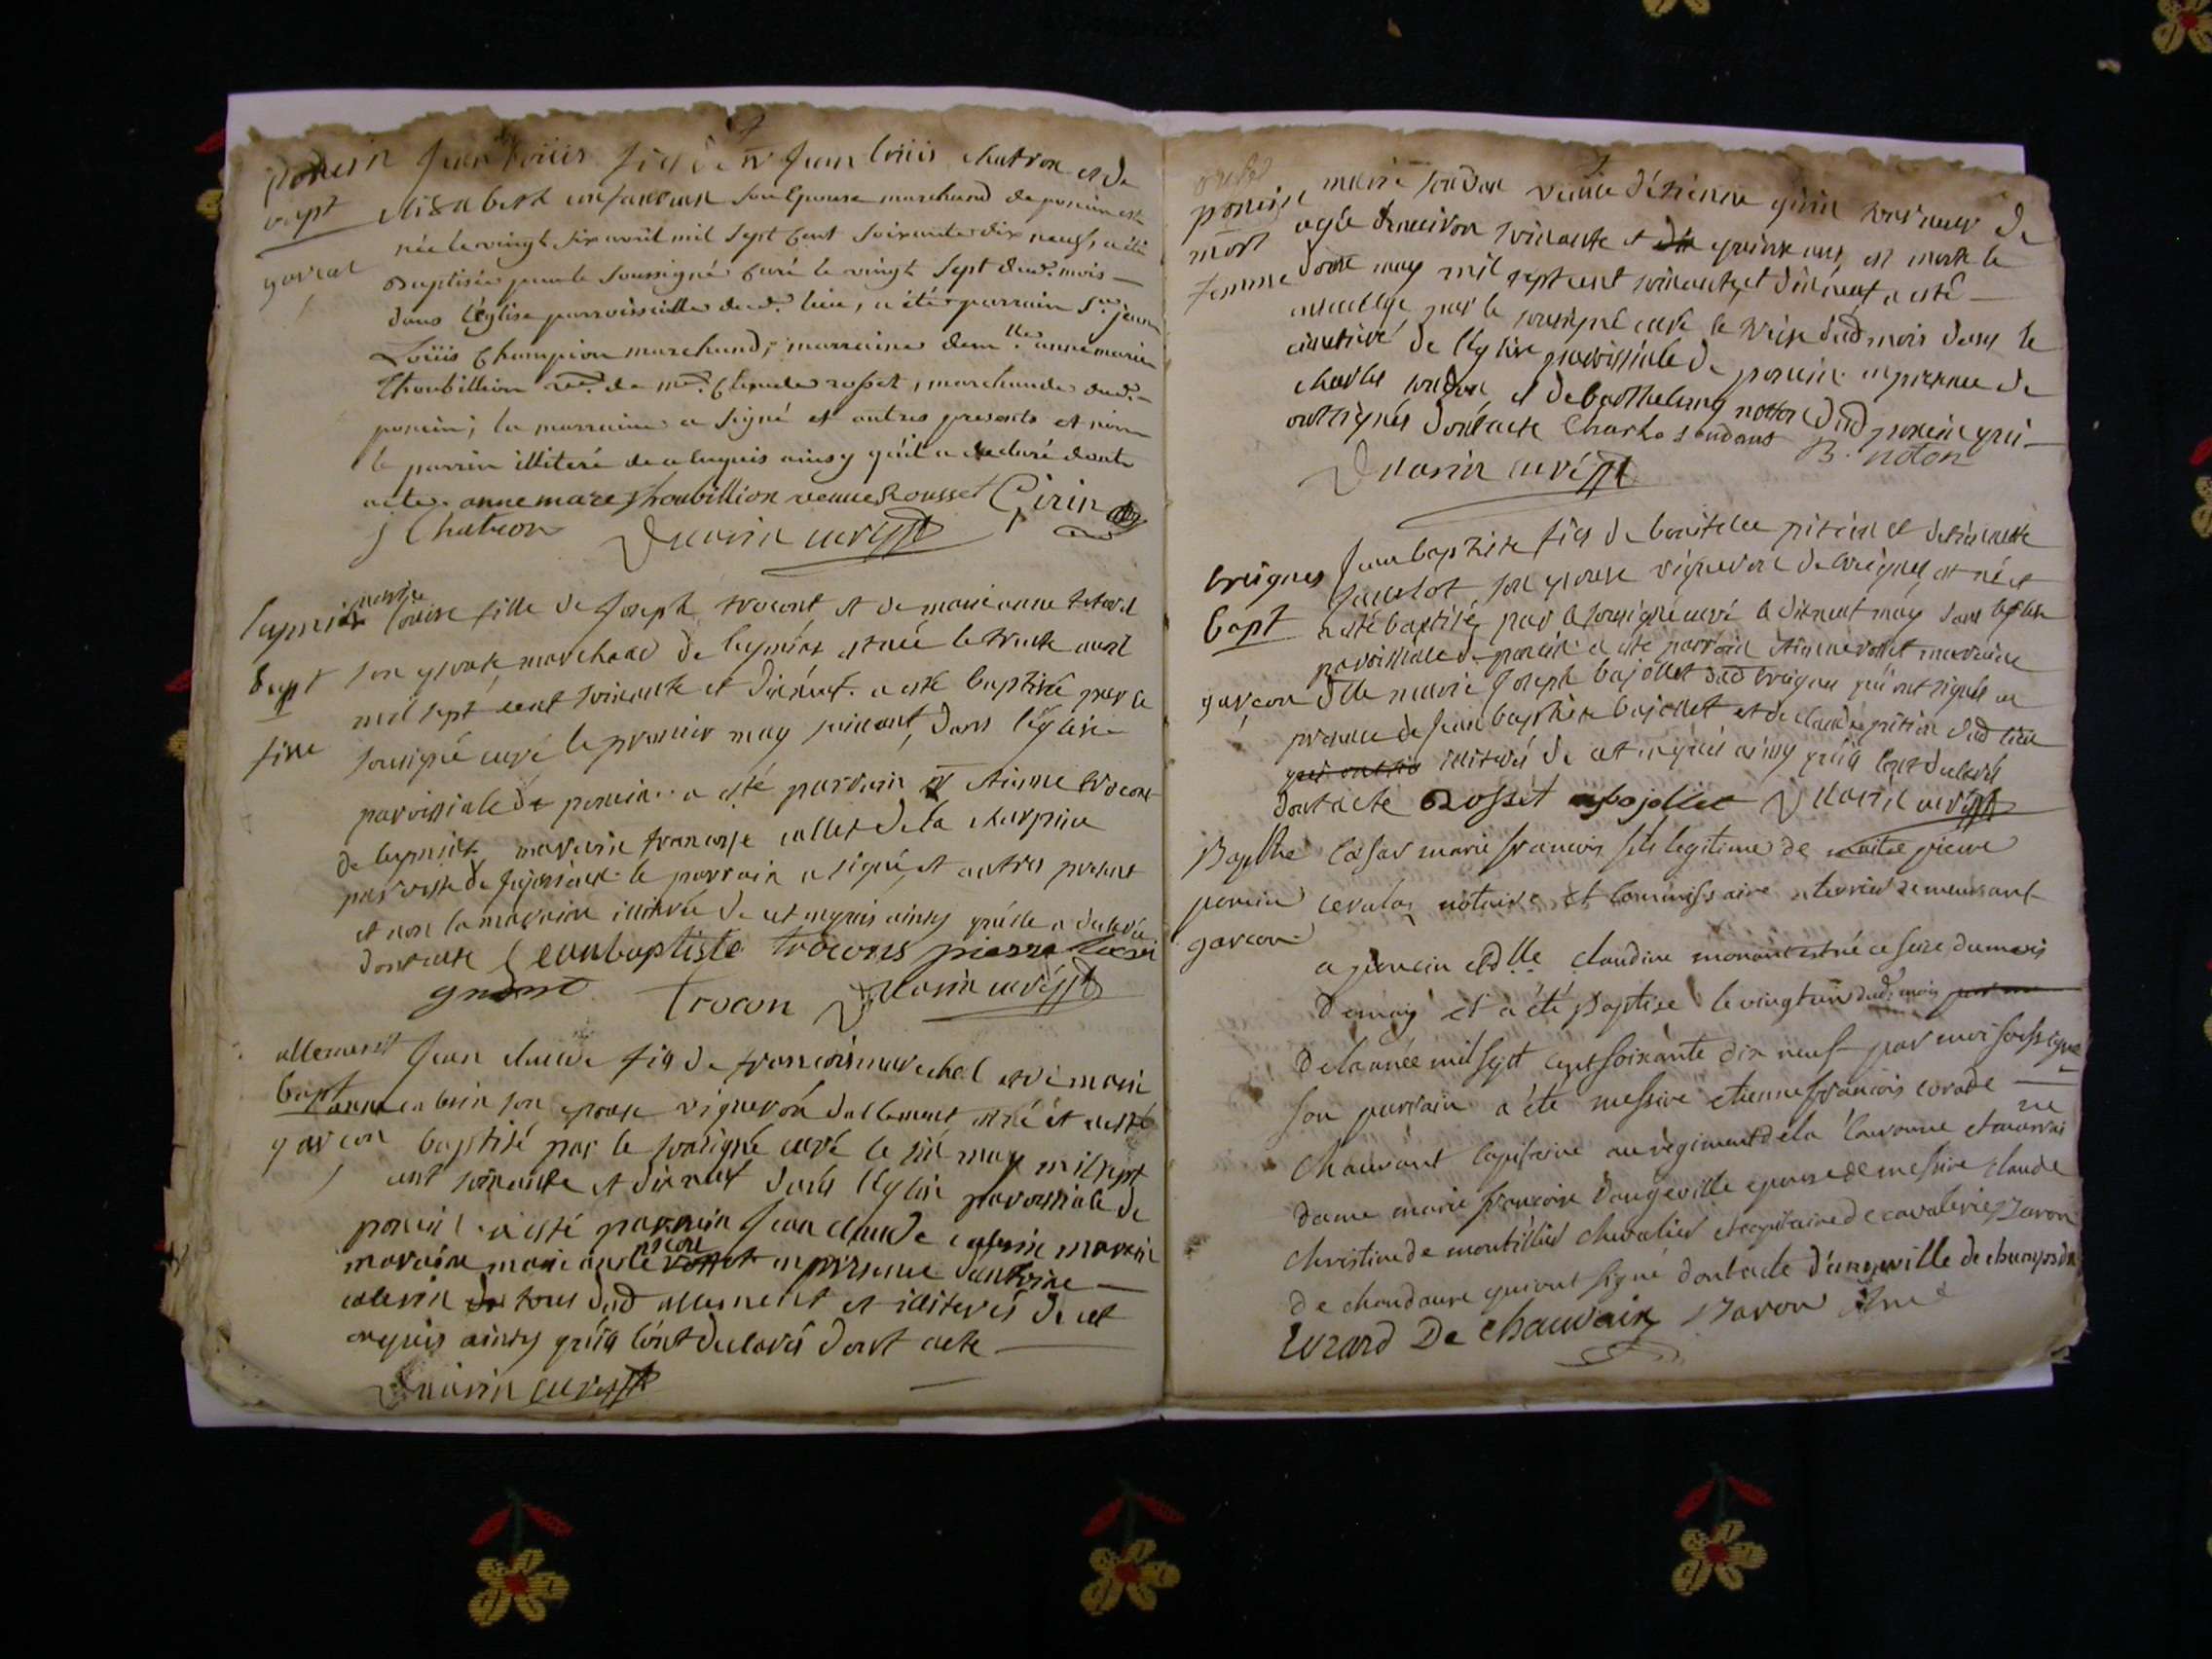 poncin Jean Loüis fils de Sr Jean loüis chatron et de
bapt elisabeth son epouse marchand de poncin est
née le vingt six avril mil sept cent soixante dix neuf, a été
garcon Baptisée par le soussigné curé le vingt sept dud. mois
dans l'église parroissialle dud. lieu, a été parrain Sr. jean
Loüis Champion marchand, marraine demlle. anne marie
Thoubillion vve. de me. Claude rosset, marchande dud.
poncin; la marraine a signé et autres presents et non
le parrin illiteré de ce enquis ainsy qu'il a declaré dont
acte. anne marie thoubillion veuve Rousset Girin
J Chatron Duarin curé
leymiat marie loüise fille de Joseph trocont et de marianne
bapt son epouse marchand de leymiat est née le trente avril
mil sept cent soixante et dixneuf. a esté baptisée par le
fille sousigné curé le premier may suivant, dans l'église
paroissiale de poncin. a esté parrain Sr Etienne trocont
de leymiat maraine francoise collet de la
paroisse de Jujurieux le parrain a signé et autres present
et non la maraine illiterée de ce enquis ainsy qu'elle a declarée
dont acte Jeanbaptiste trocons pierre
Trocon Duarin curé
allement Jean claude fils de francois marechal et de marie
bapt anne cabrin son epouse vigneron dallement est né et a esté
garcon baptisé par le sousigné curé le six may mil sept
cent soixante et dixneuf dans l'église paroissiale de
poncin. a esté parrain Jean claude
maraine marie anne en presence dantoine
de tous dud allement et illiterés de ce
enquis ainsy qu'ils l'ont declarés dont acte
Duarin curé
poncin marie sondon veuve d'étienne girin de
mort agée denviron soixante et quinze ans, est morte le
femme douze may mil sept cent soixante et dixneuf a esté
ensevelye par le sousigné curé le treize dud mois dans le
cimetière de l'église paroissiale de poncin en presence de
charles sondon et de barthelemy noton dud poncin qui
ont signés dont acte Charles sondons B. noton
Duarin curé
breignes Jean baptiste fils de
son epouse vigneron de breignes est né et
bapt a esté baptisé par le sousigné curé le dixneuf may dans l'église
paroissiale de poncin a esté parrain Etienne rosset maraine
garcon dlle marie Joseph bajollet dud breignes qui ont signés en
presence de Jean baptiste bajollet et de claude pitiou dud lieu
qui ont illiterés de ce enquis ainsy qu'ils l'ont declarés
dont acte Rosset bajollet Duarin curé
Bapthe Cesar marie francois fils legitime de maitre pierre
poncin notaire et Commissaire a terrier demeurant
garcon
a poncin et dlle claudine monant est né ce seize du mois
de may et a été Baptise le vingt un dud. mois
de l'année mil sept cent soixante dix neuf par moi soussigné
son parrain a été messire etienne francois corade
Chauvant Capitaine au regiment de la Couronne et marraine
dame marie francoise dangeville epouse de messire claude
christine de montillet chevalier et capitaine de cavalerie Baron
de chandaure qui ont signé dont acte d'angeville de
De Chauvain Baron